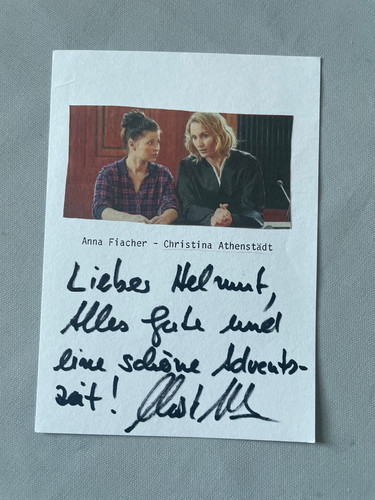 Anna Fiacher - Christina Athenstädt
Lieber Helmut,
Alles Gute und
eine schöne Advents-
zeit!